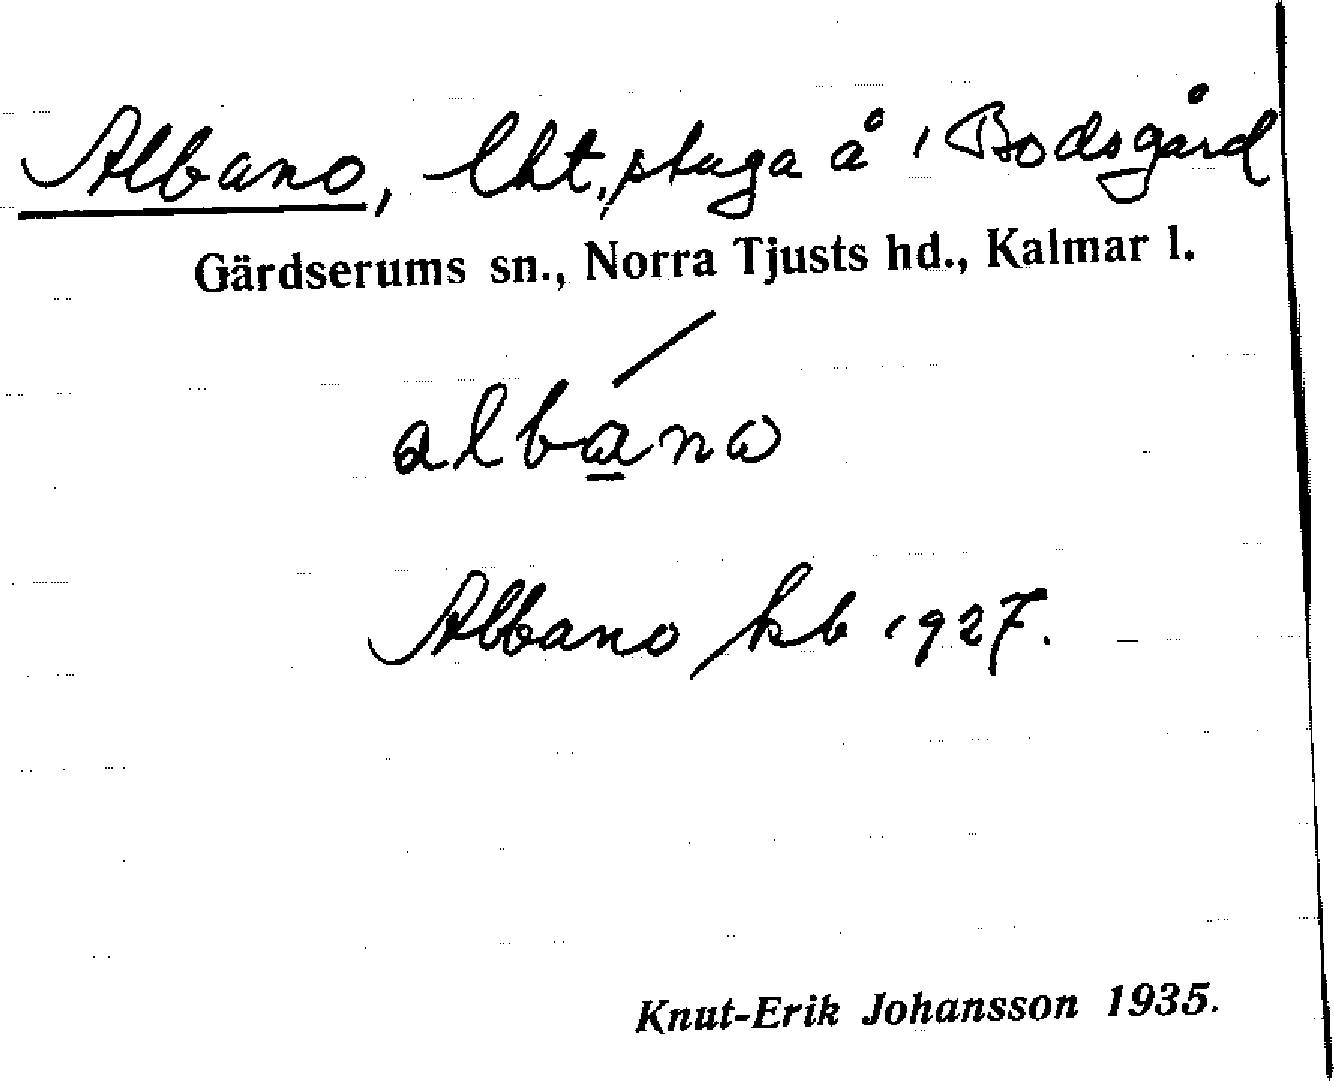 Albano, lht, stuga å 1 Bodsgård
Gärdserums sn., Norra Tjusts hd., Kalmar l.
albano
Albano kb 1927.
Knut-Erik Johansson 1935.